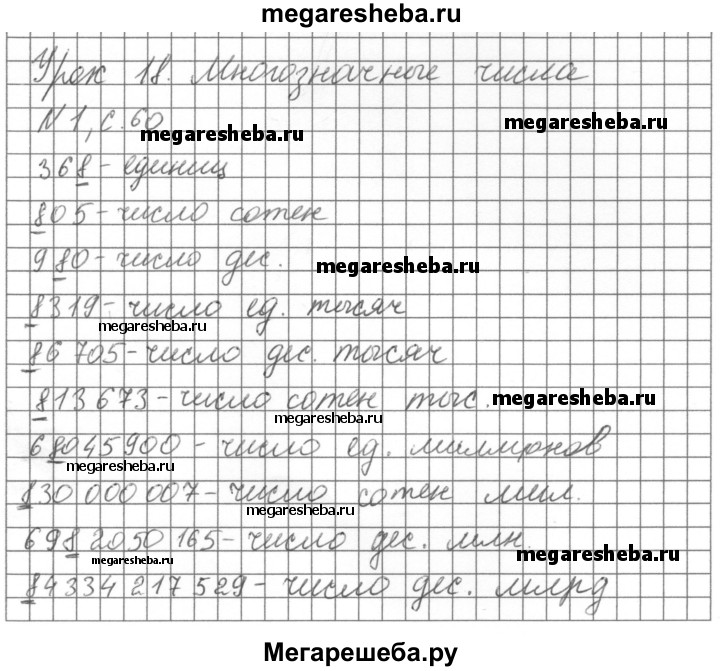 megaresheba.ru
Урок 18. Многозначные числа
N 1, с. 60
megaresheba.ru
megaresheba.ru
368 - единиц
805 - число сотен
980 - число дес.
megaresheba.ru
8319 - число ед. тысяч
megaresheba.ru
86 705 - число дес. тысяч
813 673 - число сотен тыс.
megaresheba.ru
megaresheba.ru
68045900 - число ед. миллионов
megaresheba.ru
830 000 007 - число сотен мил.
megaresheba.ru
698 2050 165 - число дес. млн.
megaresheba.ru
megaresheba.ru
84334 217 529 - число дес. млрд
Мегарешеба.ру